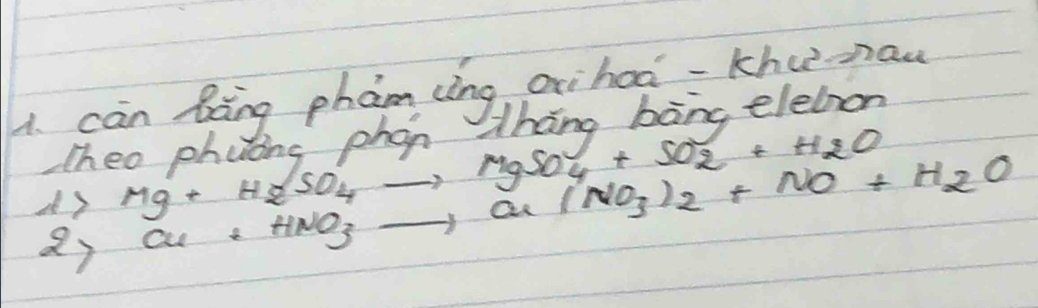 1. cân bằng phảm ứng oxi hoá - khử sau
theo phương pháp thăng bằng eletron
1> Mg + H2SO4 → MgSO4 + SO2 + H2O
2> Cu + HNO3 → Cu(NO3)2 + NO + H2O